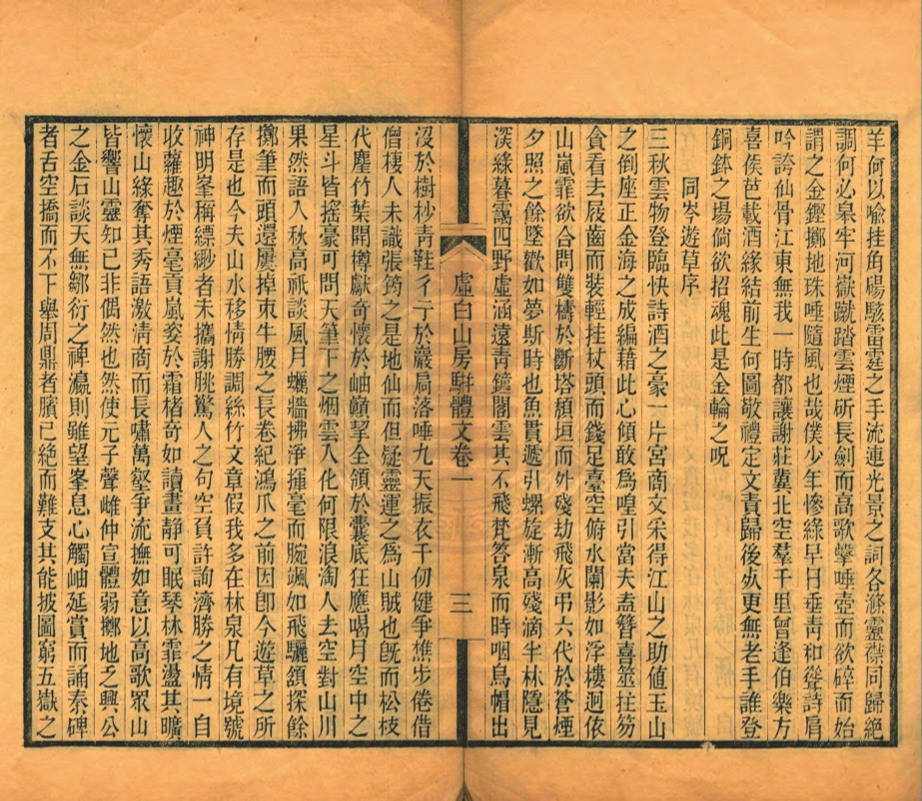 羊何以喩挂角碭駭雷霆之手流連光景之詞各滌靈襟同歸絶
調何必臯牢河嶽蹴踏雲煙斫長劍而高歌擊唾壺而欲碎而始
謂之金鏗擲地珠唾隨風也哉僕少年慘綠早日垂靑和聳詩肩
吟誇仙骨江東無我一時都讓謝莊冀北空羣千里曾逢伯樂方
喜侯芭載酒緣結前生何圖敬禮定文責歸後死更無老手誰登
銅鉢之場倘欲招魂此是金輪之呪
同岑遊草序
三秋雲物登臨快詩酒之豪一片宮商文采得江山之助値玉山
之倒座正金海之成編藉此心傾敢爲喤引當夫盍簪喜竝拄笏
貪看去屐齒而裝輕挂杖頭而錢足臺空俯水闌影如浮樓迥依
山嵐霏欲合問雙檮於斷塔頹垣而外殘劫飛灰弔六代於蒼煙
夕照之餘墜歡如夢斯時也魚貫遞引螺旋漸高殘滴半林隱見
深綠暮靄四野虛涵遠靑鏡閣雲其不飛梵答泉而時咽烏帽出
虛白山房騈體文卷一
三
沒於樹杪靑鞋彳亍於巖扃落唾九天振衣千仞健爭樵步倦借
僧棲人未識張筠之是地仙而但疑靈運之爲山賊也旣而松枝
代麈竹葉開罇獻奇懷於岫幘挈全領於囊底狂應喝月空中之
星斗皆搖豪可問天筆下之烟雲入化何限浪淘人去空對山川
果然語入秋高祇談風月蠣牆拂淨揮毫而腕颯如飛驪頷探餘
擲筆而頭還屢掉束牛腰之長卷紀鴻爪之前因卽今遊草之所
存是也今夫山水移情勝調絲竹文章假我多在林泉凡有境號
神明峯稱縹緲者未攜謝脁驚人之句空負許詢濟勝之情一自
收蘿趣於煙毫貢嵐姿於霜楮奇如讀畫靜可眠琴林霏盪其曠
懷山綠奪其秀語激淸商而長嘯萬壑爭流撫如意以高歌眾山
皆響山靈知已非偶然也然使元子聲雌仲宣體弱擲地乏興公
之金石談天無鄒衍之裨瀛則雖望峯息心觸岫延賞而誦秦碑
者舌空撟而不下舉周鼎者臏已絶而難支其能披圖窮五嶽之